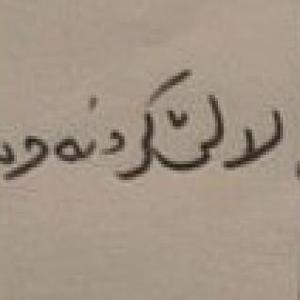 لالێکردنەوە